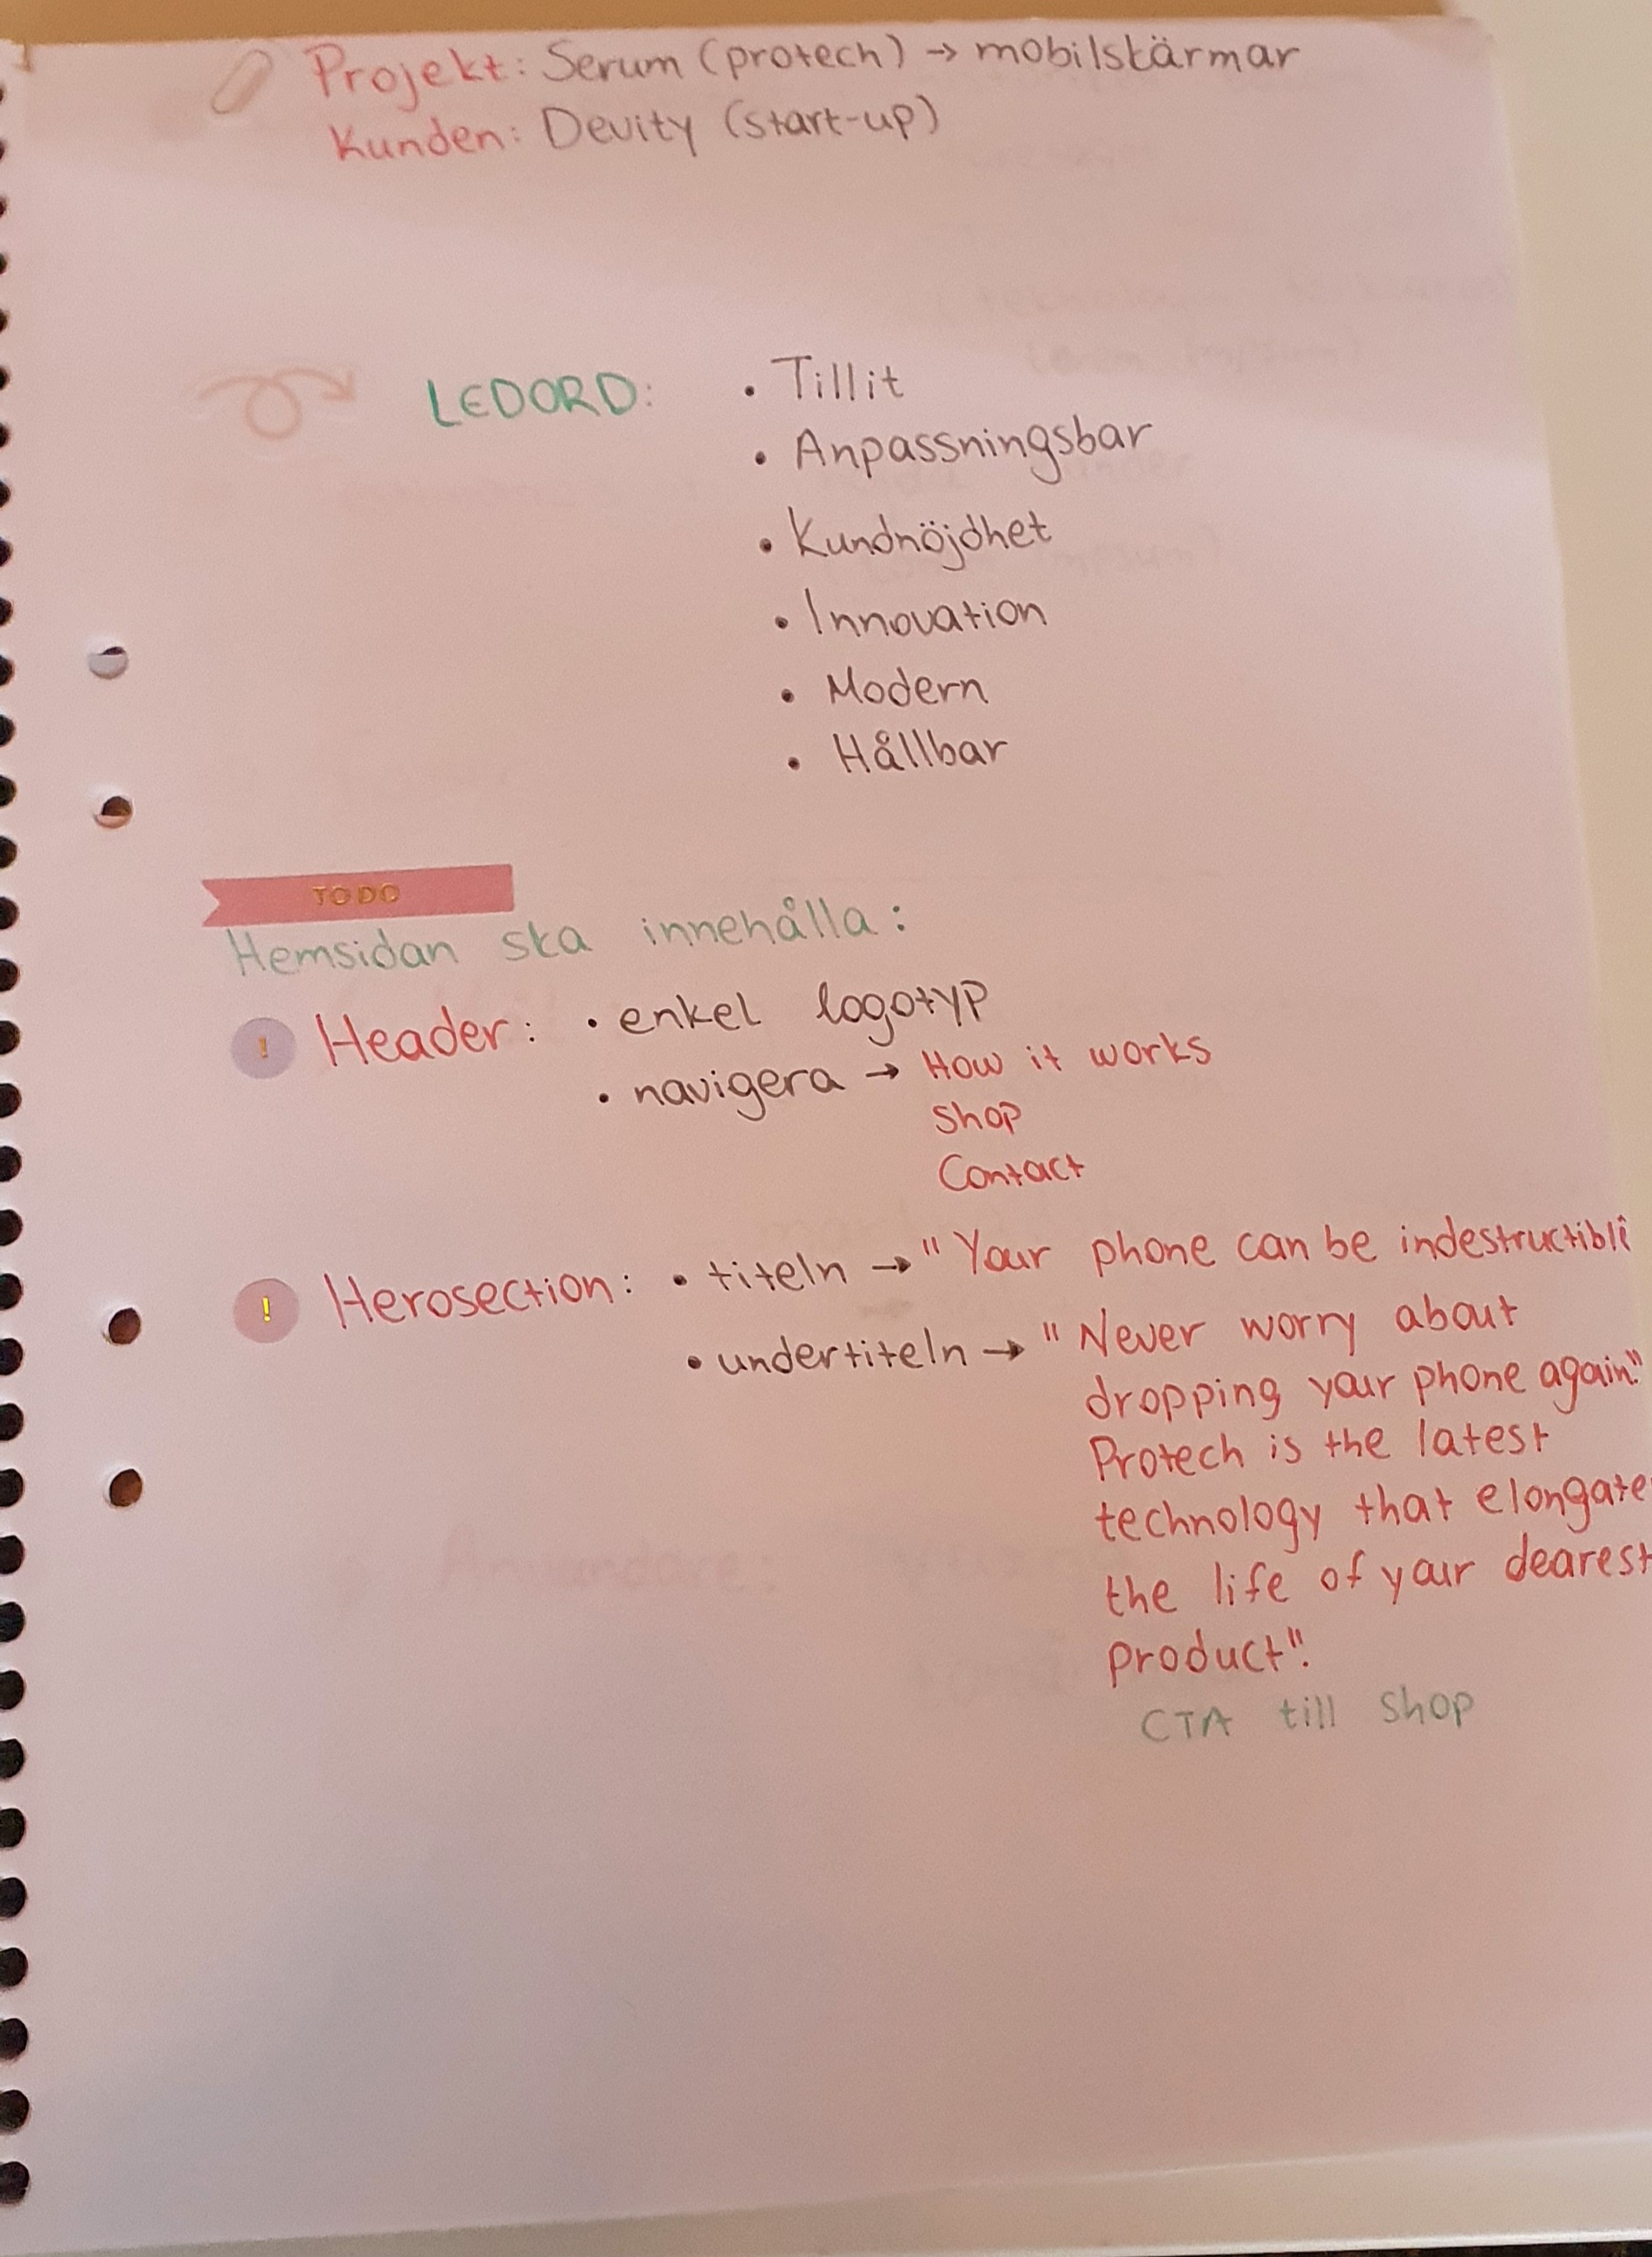 Projekt: Serum (protech) → mobilskärmar
Kunden: Devity (start-up)
LEDORD: • Tillit
• Anpassningsbar
• Kundnöjdhet
• Innovation
• Modern
• Hållbar
TO DO
Hemsidan ska innehålla:
! Header: • enkel logotyp
• navigera → How it works
Shop
Contact
! Herosection: • titeln → "Your phone can be indestructible"
• undertiteln → "Never worry about
dropping your phone again."
Protech is the latest
technology that elongate
the life of your dearest
product".
CTA till shop
Användare: